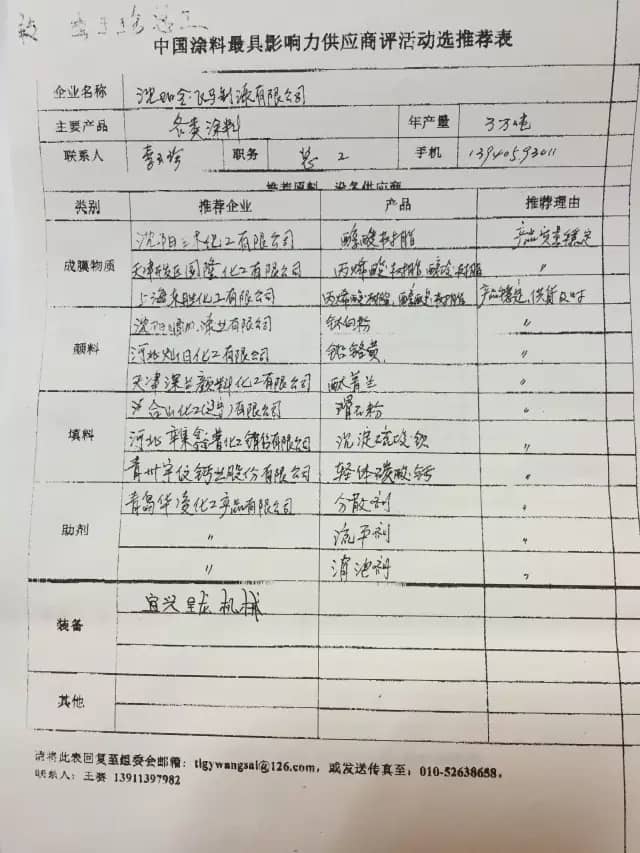 中国涂料最具影响力供应商评活动选推荐表
企业名称 有限公司
主要产品 各类涂料 年产量 3万吨
联系人 职务 总工 手机 13940593011
推荐原料、设备供应商
类别 推荐企业 产品 推荐理由
成膜物质 沈阳三木化工有限公司 醇酸树脂 产品质量稳定
天津开发区国隆化工有限公司 丙烯酸树脂,醇酸树脂 〃
上海东胜化工有限公司 丙烯酸树脂,醇酸树脂 产品稳定,供货及时
颜料 有限公司 钛白粉 〃
河北灿日化工有限公司 铅铬黄 〃
天津深兰颜料化工有限公司 酞菁兰 〃
填料 化工 有限公司 滑石粉 〃
河北辛集 化工 有限公司 沉淀硫酸钡 〃
青州宇信钙业股份有限公司 轻体碳酸钙 〃
助剂 青岛华凌化工产品有限公司 分散剂 〃
〃 流平剂 〃
〃 消泡剂 〃
装备 宜兴 机械
其他
请将此表回复至组委会邮箱:tlgywangsai@126.com,或发送传真至:010-52638658。
联系人:王赛 13911397982